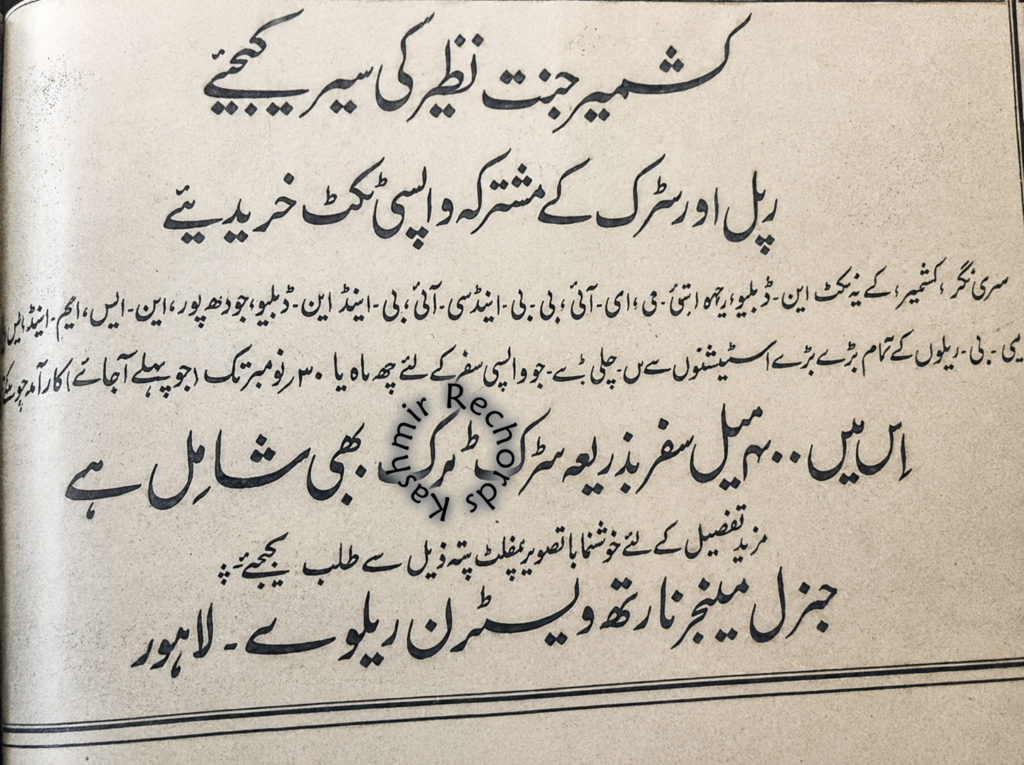 کشمیر جنت نظیر کی سیر کیجئیے
ریل اور سڑک کے مشترکہ واپسی ٹکٹ خریدئیے
سری نگر (کشمیر) کے یہ ٹکٹ این۔ڈبلیو، ای۔آئی، بی۔بی۔اینڈسی۔آئی، بی۔اینڈ این۔ڈبلیو، جودھپور، این۔ایس، ایم۔اینڈ ایس
بی۔ریلوں کے تمام بڑے بڑے اسٹیشنوں سے چلی ہے۔جو واپسی سفر کے لئے چھ ماہ یا ۳۰؍نومبر تک (جو پہلے آجائے) کارآمد
اِس میں ۴۰۰ میل سفر بذریعہ سڑک بھی شامِل ہے
مزید تفصیل کے لئے خوشنما باتصویر پمفلٹ پتہ ذیل سے طلب کیجئے۔
جنرل مینجر نارتھ ویسٹرن ریلوے۔ لاہور
Kashmir Rechords